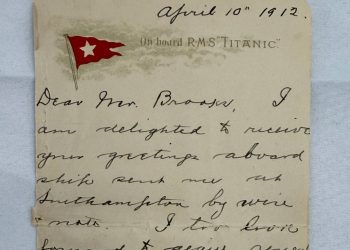 April 10" 1912.
On board R.M.S. "TITANIC"
Dear Mr. Brooks, I
am delighted to receive
your greetings aboard
ship sent me at
Southampton by wire
& note. I too look
forward to